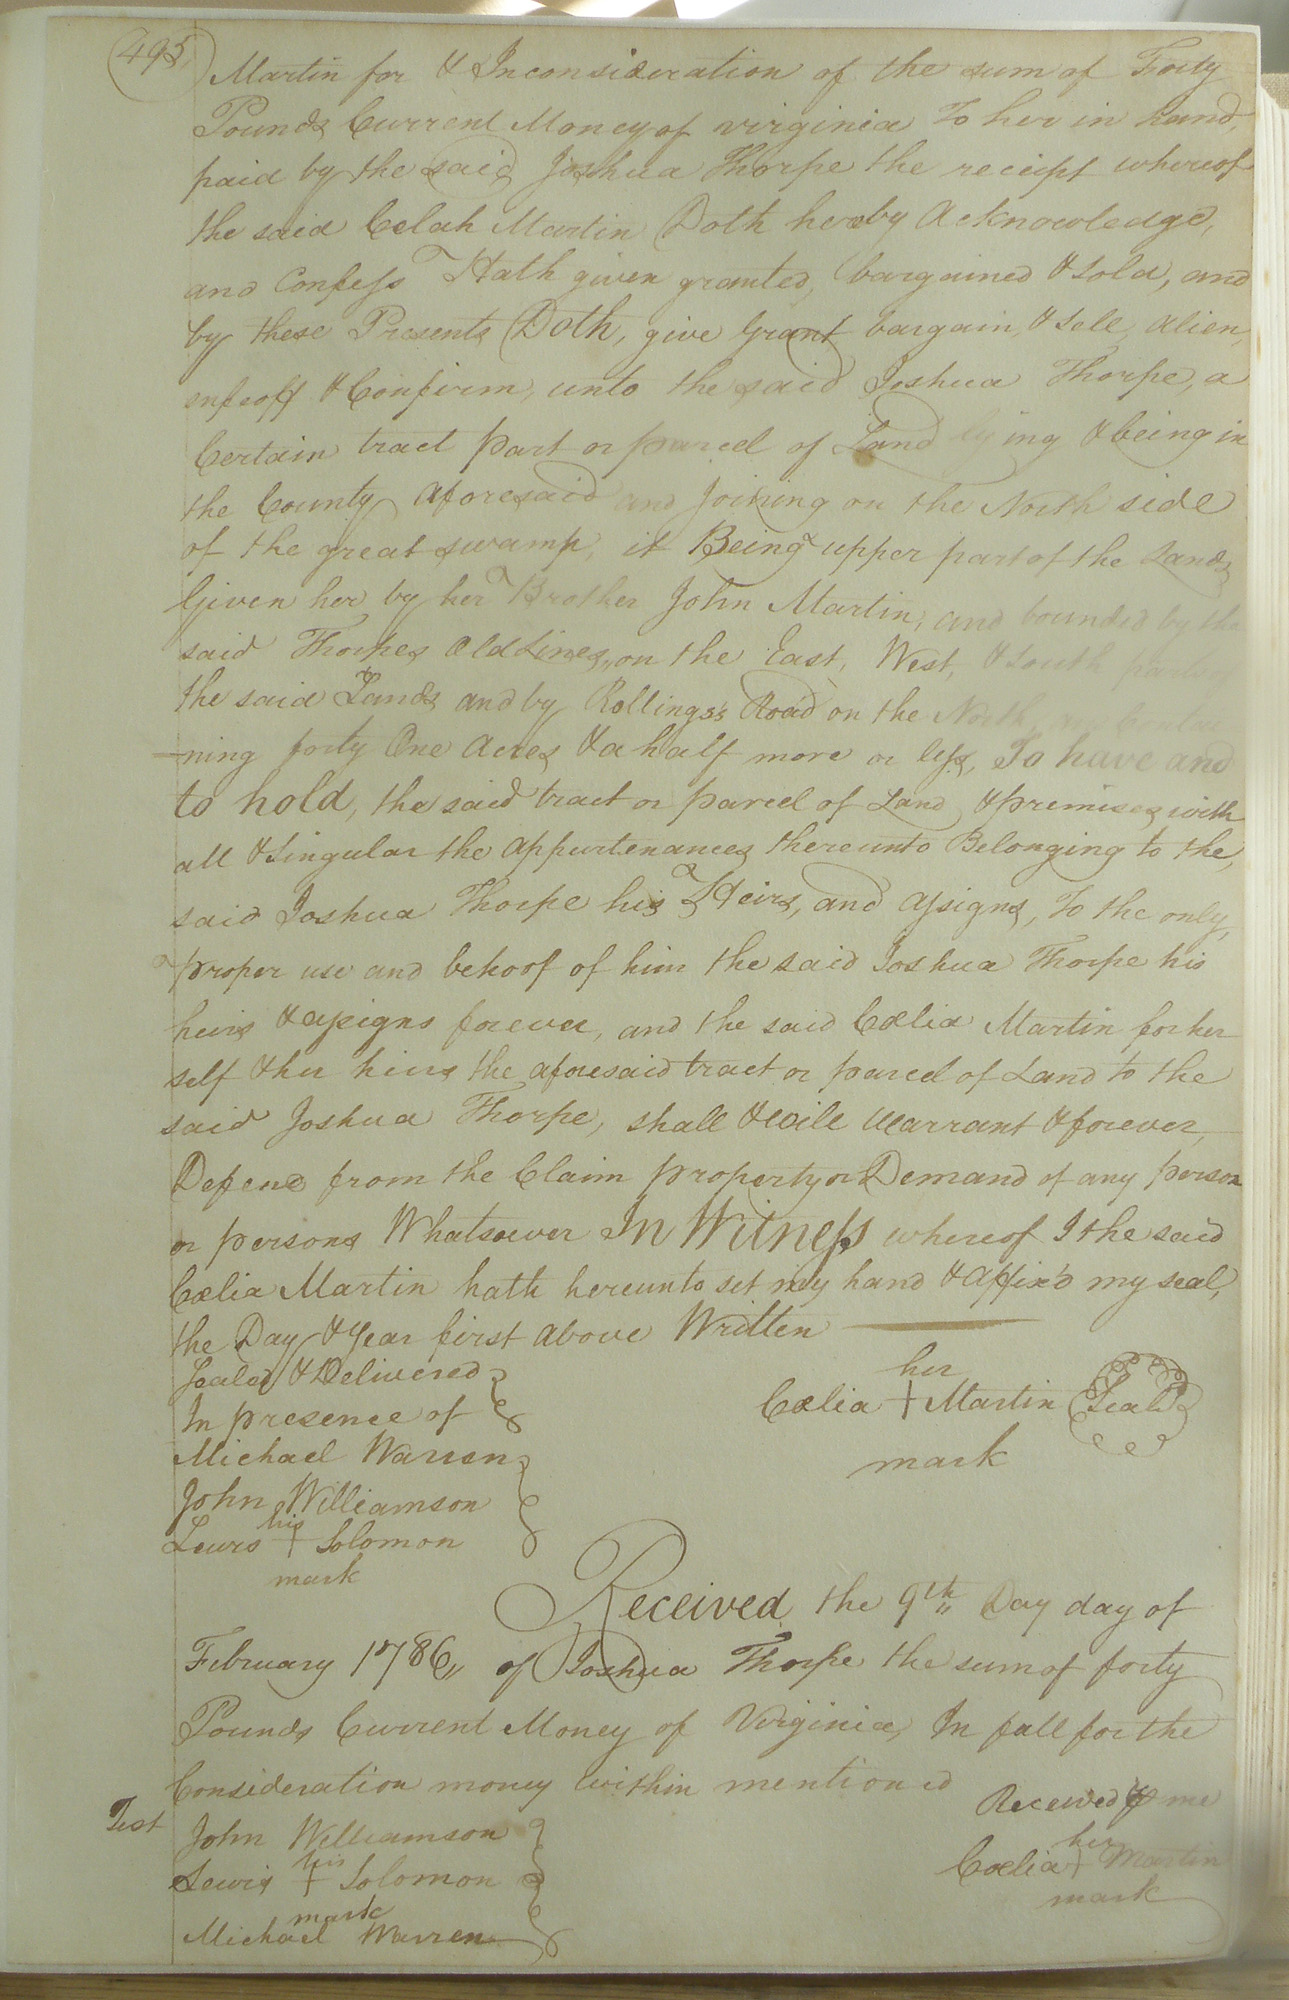 495
Martin for & Inconsideration of the sum of Forty
Pounds Current Money of virginia To her in hand,
paid by the said Joshua Thorpe the receipt whereof
the said Celah Martin Doth hereby Acknowledge,
and Confess Hath given granted, bargained & Sold, and
by these Presents Doth, give Grant bargain, & Sell, alien,
enfeoff & Confirm, unto the said Joshua Thorpe, a
Certain tract part or parcel of Land lying & being in
the County aforesaid and Joining on the North side
of the great swamp, it Being upper part of the Lands
Given her by her Brother John Martin, and bounded by the
said Thorpes Old Lines, on the East, West, & South part of
the said Lands and by Rollings's Road on the North
ning forty One Acres & a half more or less, To have and
to hold, the said tract or parcel of Land & premises with
all & Singular the appurtenances thereunto Belonging to the,
said Joshua Thorpe his Heirs, and assigns, To the only,
proper use and behoof of him the said Joshua Thorpe his
heirs & assigns forever, and the said Cælia Martin for her
self & her heirs the aforesaid tract or parcel of Land to the
said Joshua Thorpe, shall & will Warrant & forever,
Defend from the Claim property or Demand of any person
or persons Whatsoever In Witness whereof I the said
Cælia Martin hath hereunto set my hand & affix'd my seal,
the Day & Year first above Written
Sealed & Delivered
In presence of
Michael Warren
John Williamson
his
Lewis + Solomon
mark
her
Cælia + Martin Seal
mark
Received the 9th Day day of
February 1786 of Joshua Thorpe the sum of forty
Pounds Current Money of Virginia, In full for the
Consideration money within mentioned
Received me
her
Cælia + Martin
mark
Test John Williamson
his
Lewis + Solomon
mark
Michael Warren